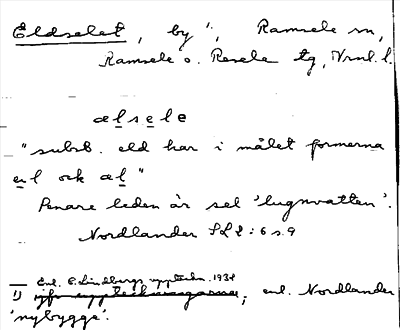 Eldselet, by ¹⁾, Ramsele sn,
Ramsele o. Resele tg, Vrnl. l.
ælsele
"subst. eld har i målet formerna
el ock æl"
Senare leden är sel 'lugnvatten'.
Nordlander SLl : 6 s. 9
1) Enl. E. Lindbergs uppteckn. 1938
jfr uppteckningarna; enl. Nordlander
'nybygge'.